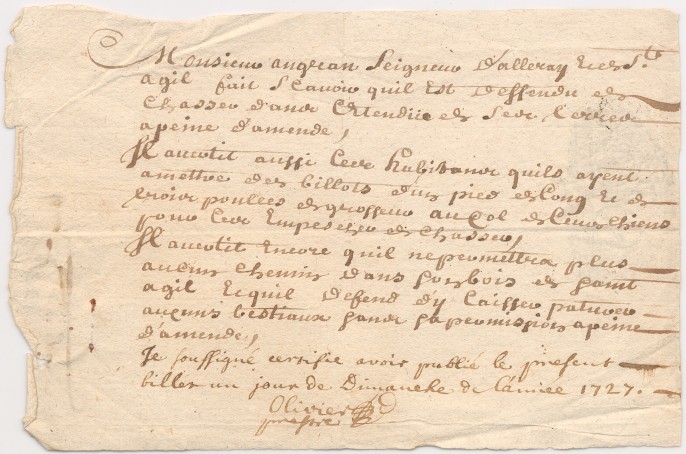 Monsieur angran Seigneur d'alleray et de Ste
agil fait Scauoir quil Est deffendu de
Chasser dans Letendüe de Ses Terres
apeine d'amende,
Il auertit aussi les habitans quils ayent
amettre des billots d'un pied de long et de
trois poulces de grosseur au Col de Leurs chiens
pour les Empescher de chasser,
Il auertit Encore quil ne permettra plus
aucuns chemins dans ses bois de saint
agil et quil defend dy laisser paturer
aucuns bestiaux sans sa permission apeine
d'amende,
Je soussigné certifie avoir publié le présent
billet un jour de Dimanche de l'année 1727.
Olivier
prestre